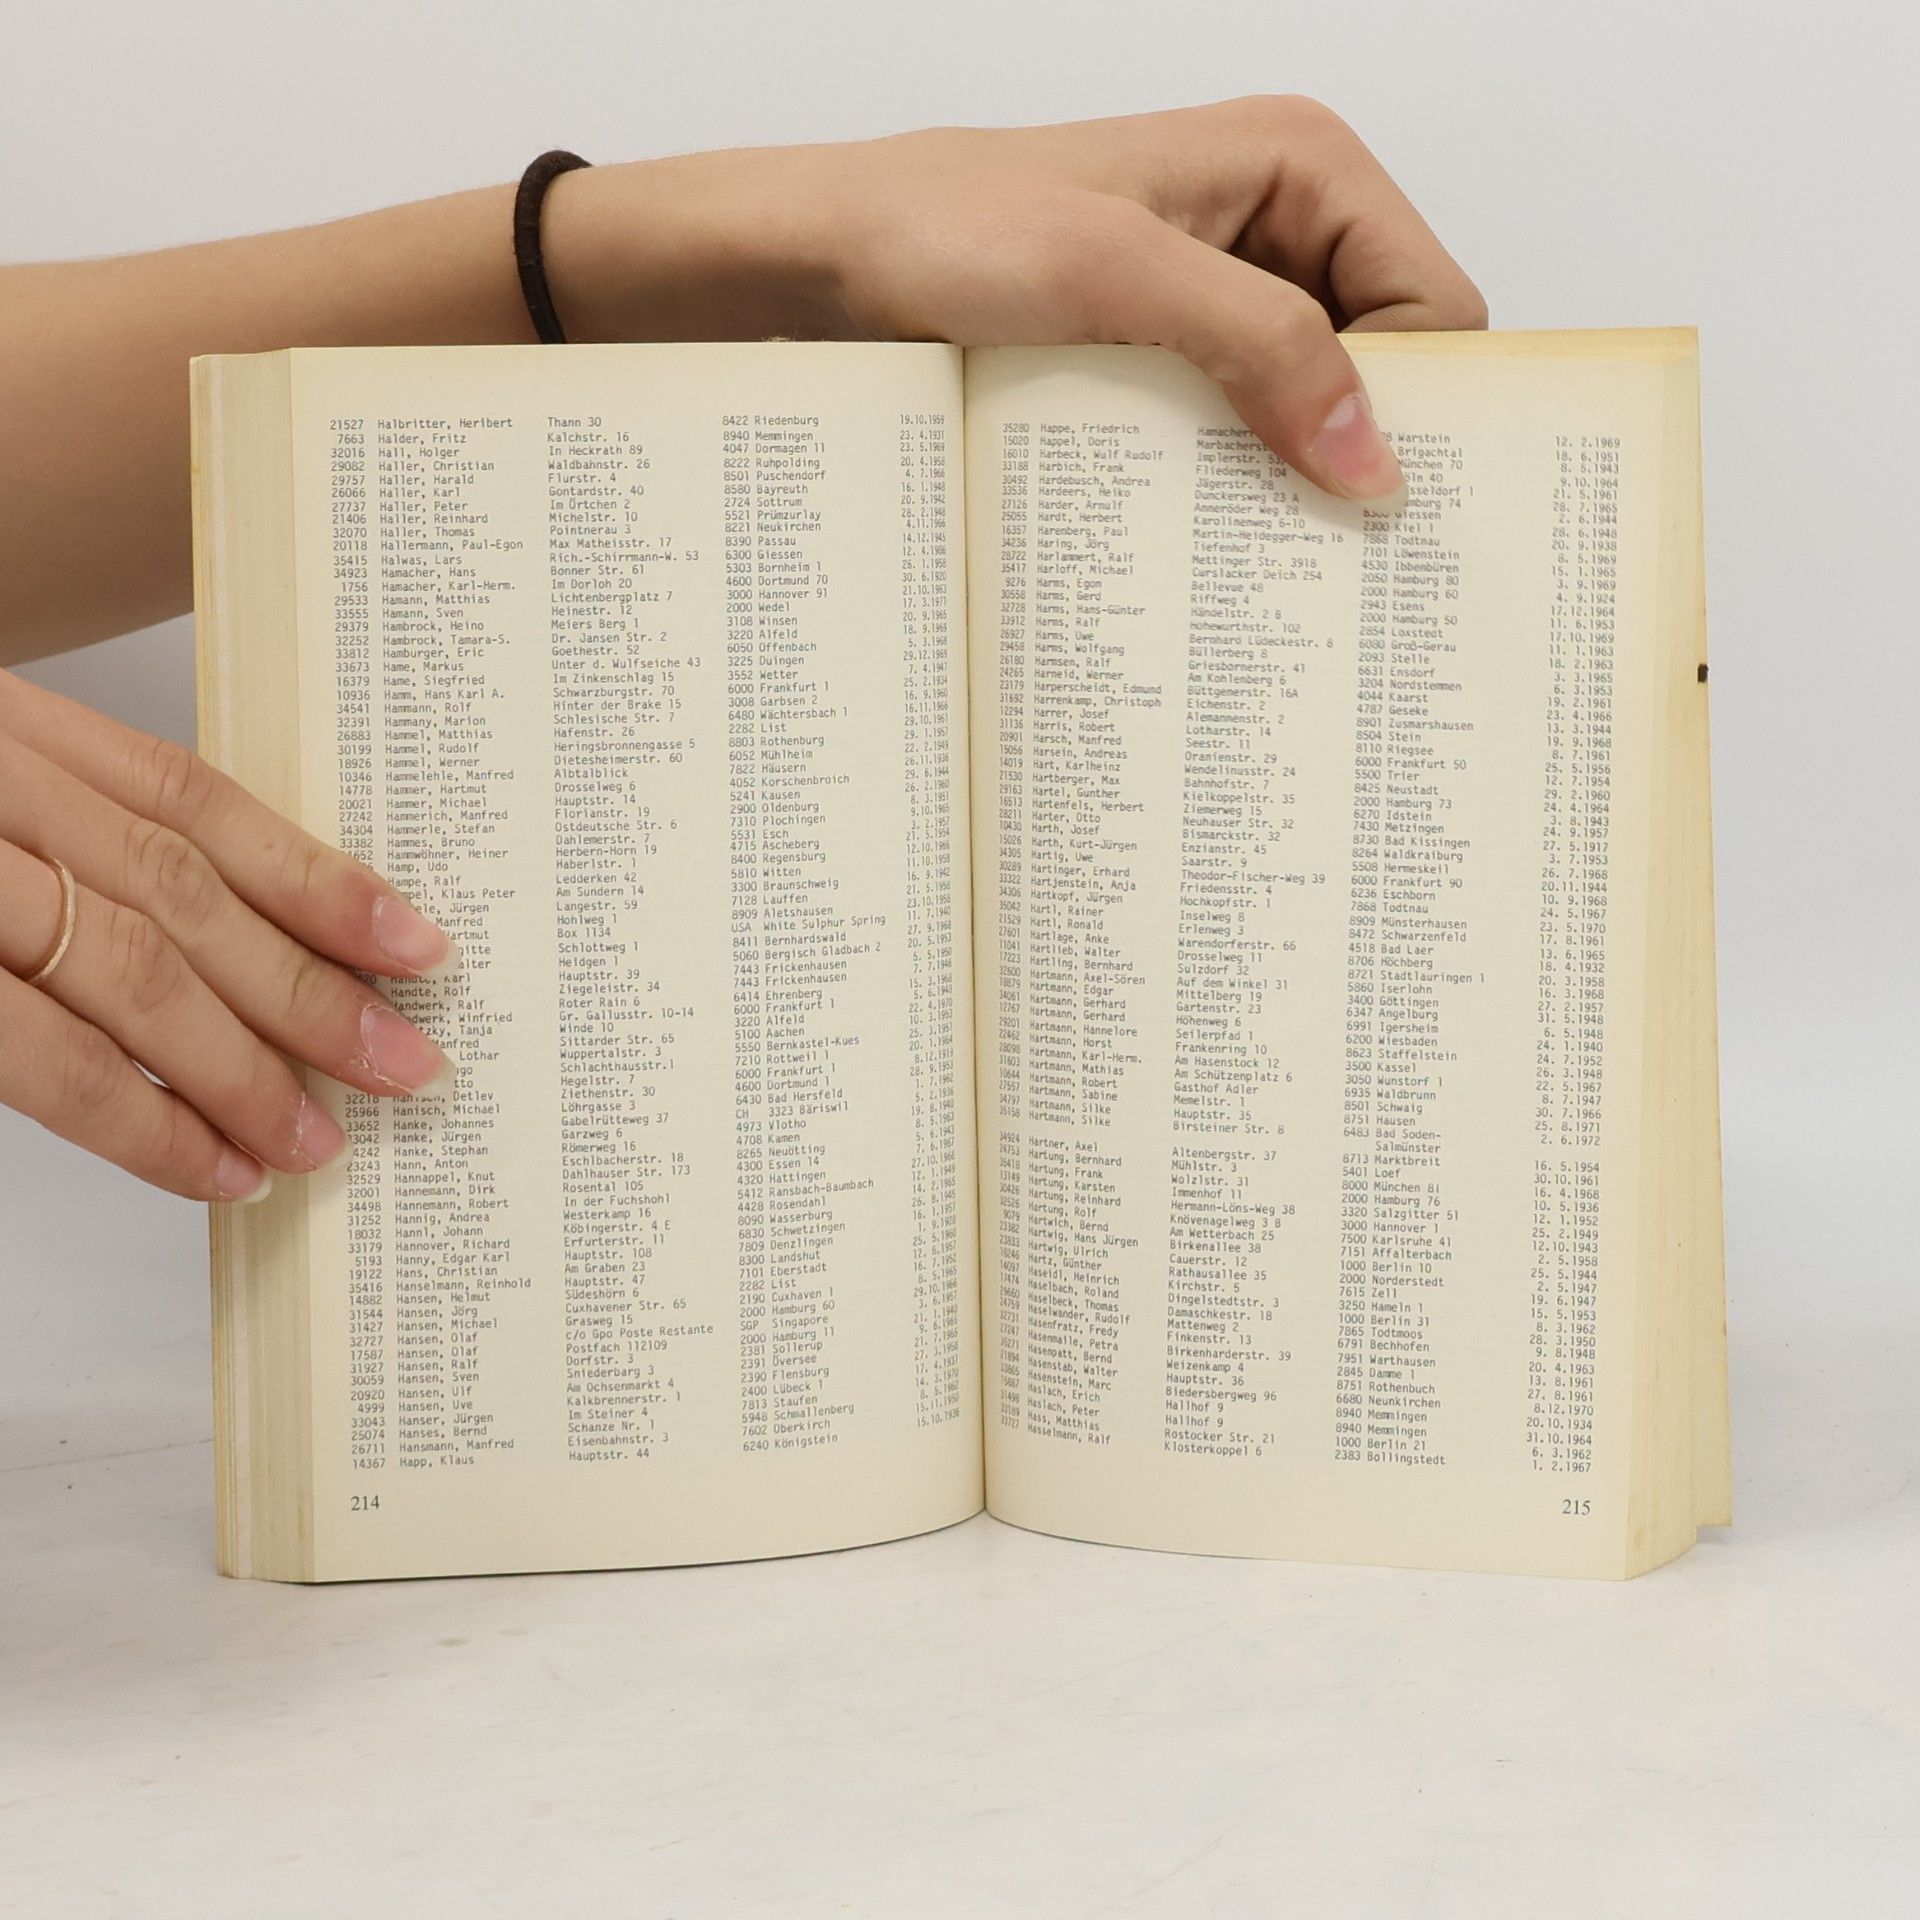 21527 Halbritter, Heribert Thann 30 8422 Riedenburg 19.10.1959
7663 Halder, Fritz Kalchstr. 16 8940 Memmingen 23. 4.1931
32016 Hall, Holger In Heckrath 89 4047 Dormagen 11 23. 5.1969
29082 Haller, Christian Waldbahnstr. 26 8222 Ruhpolding 20. 4.1958
29757 Haller, Harald Flurstr. 4 8501 Puschendorf 4. 7.1966
26066 Haller, Karl Gontardstr. 40 8580 Bayreuth 16. 1.1948
27737 Haller, Peter Im Örtchen 2 2724 Sottrum 20. 9.1942
21406 Haller, Reinhard Michelstr. 10 5521 Prümzurlay 28. 2.1948
32070 Haller, Thomas Pointnerau 3 8221 Neukirchen 4.11.1966
20118 Hallermann, Paul-Egon Max Matheisstr. 17 8390 Passau 14.12.1945
35415 Halwas, Lars Rich.-Schirrmann-W. 53 6300 Giessen 12. 4.1966
34923 Hamacher, Hans Bonner Str. 61 5303 Bornheim 1 26. 1.1958
1756 Hamacher, Karl-Herm. Im Dorloh 20 4600 Dortmund 70 30. 6.1920
29533 Hamann, Matthias Lichtenbergplatz 7 3000 Hannover 91 21.10.1963
33555 Hamann, Sven Heinestr. 12 2000 Wedel 17. 3.1971
29379 Hambrock, Heino Meiers Berg 1 3108 Winsen 20. 9.1965
32252 Hambrock, Tamara-S. Dr. Jansen Str. 2 3220 Alfeld 18. 9.1969
33812 Hamburger, Eric Goethestr. 52 6050 Offenbach 5. 3.1968
33673 Hame, Markus Unter d. Wulfseiche 43 3225 Duingen 29.12.1969
16379 Hame, Siegfried Im Zinkenschlag 15 3552 Wetter 7. 4.1947
10936 Hamm, Hans Karl A. Schwarzburgstr. 70 6000 Frankfurt 1 25. 2.1934
34541 Hammann, Rolf Hinter der Brake 15 3008 Garbsen 2 16. 9.1960
32391 Hammany, Marion Schlesische Str. 7 6480 Wächtersbach 1 16.11.1966
26883 Hammel, Matthias Hafenstr. 26 2282 List 29.10.1961
30199 Hammel, Rudolf Heringsbronnengasse 5 8803 Rothenburg 29. 1.1957
18926 Hammel, Werner Dietesheimerstr. 60 6052 Mühlheim 22. 2.1949
10346 Hammelehle, Manfred Albtalblick 7822 Häusern 26.11.1936
14778 Hammer, Hartmut Drosselweg 6 4052 Korschenbroich 29. 6.1944
20021 Hammer, Michael Hauptstr. 14 5241 Kausen 26. 2.1960
27242 Hammerich, Manfred Florianstr. 19 2900 Oldenburg 8. 3.1951
34304 Hammerle, Stefan Ostdeutsche Str. 6 7310 Plochingen 9.10.1965
33382 Hammes, Bruno Dahlemerstr. 7 5531 Esch 3. 2.1957
Hammwöhner, Heiner Herbern-Horn 19 4715 Ascheberg 21. 5.1954
Hamp, Udo Haberlstr. 1 8400 Regensburg 12.10.1966
Hampe, Ralf Ledderken 42 5810 Witten 11.10.1958
Klaus Peter Am Sundern 14 3300 Braunschweig 16. 9.1942
Jürgen Langestr. 59 7128 Lauffen 21. 5.1956
Manfred Hohlweg 1 8909 Aletshausen 23.10.1958
Hartmut Box 1134 USA White Sulphur Spring 11. 7.1940
Schlottweg 1 8411 Bernhardswald 27. 9.1968
Heidgen 1 5060 Bergisch Gladbach 2 20. 5.1953
Handte, Karl Hauptstr. 39 7443 Frickenhausen 5. 5.1950
Handte, Rolf Ziegeleistr. 34 7443 Frickenhausen 7. 7.1946
Handwerk, Ralf Roter Rain 6 6414 Ehrenberg 15. 3.1968
Handwerk, Winfried Gr. Gallusstr. 10-14 6000 Frankfurt 1 5. 6.1948
Tanja Winde 10 3220 Alfeld 22. 4.1970
Manfred Sittarder Str. 65 5100 Aachen 10. 3.1953
Lothar Wuppertalstr. 3 5550 Bernkastel-Kues 25. 3.1951
Schlachthausstr.1 7210 Rottweil 1 20. 1.1964
Hegelstr. 7 6000 Frankfurt 1 8.12.1919
32218 Hanisch, Detlev Ziethenstr. 30 4600 Dortmund 1 28. 9.1953
25966 Hanisch, Michael Löhrgasse 3 6430 Bad Hersfeld 1. 7.1962
33652 Hanke, Johannes Gabelrütteweg 37 CH 3323 Bäriswil 5. 2.1936
33042 Hanke, Jürgen Garzweg 6 4973 Vlotho 19. 8.1940
Hanke, Stephan Römerweg 16 4708 Kamen 8. 5.1963
23243 Hann, Anton Eschlbacherstr. 18 8265 Neuötting 5. 6.1943
32529 Hannappel, Knut Dahlhauser Str. 173 4300 Essen 14 7. 6.1967
32001 Hannemann, Dirk Rosental 105 4320 Hattingen 27.10.1966
34498 Hannemann, Robert In der Fuchshohl 5412 Ransbach-Baumbach 12. 1.1949
31252 Hannig, Andrea Westerkamp 16 4428 Rosendahl 14. 2.1965
18032 Hannl, Johann Köbingerstr. 4 E 8090 Wasserburg 26. 8.1945
33179 Hannover, Richard Erfurterstr. 11 6830 Schwetzingen 16. 1.1957
5193 Hanny, Edgar Karl Hauptstr. 108 7809 Denzlingen 1. 9.1928
19122 Hans, Christian Am Graben 23 8300 Landshut 25. 5.1960
35416 Hanselmann, Reinhold Hauptstr. 47 7101 Eberstadt 12. 6.1957
14882 Hansen, Helmut Südeshörn 6 2282 List 16. 7.1952
31544 Hansen, Jörg Cuxhavener Str. 65 2190 Cuxhaven 1 8. 5.1965
31427 Hansen, Michael Grasweg 15 2000 Hamburg 60 29.10.1966
32727 Hansen, Olaf c/o Gpo Poste Restante SGP Singapore 3. 6.1957
17587 Hansen, Olaf Postfach 112109 2000 Hamburg 11 21. 1.1940
31927 Hansen, Ralf Dorfstr. 3 2381 Sollerup 9. 6.1965
30059 Hansen, Sven Sniederbarg 3 2391 Oversee 21. 7.1966
20920 Hansen, Ulf Am Ochsenmarkt 4 2390 Flensburg 27. 3.1958
4999 Hansen, Uve Kalkbrennerstr. 1 2400 Lübeck 1 17. 4.1937
33043 Hanser, Jürgen Im Steiner 4 7813 Staufen 14. 3.1970
25074 Hanses, Bernd Schanze Nr. 1 5948 Schmallenberg 8. 5.1962
26711 Hansmann, Manfred Eisenbahnstr. 3 7602 Oberkirch 15.11.1950
14367 Happ, Klaus Hauptstr. 44 6240 Königstein 15.10.1936
214
35280 Happe, Friedrich Warstein 12. 2.1969
15020 Happel, Doris Brigachtal 18. 6.1951
16010 Harbeck, Wulf Rudolf Implerstr. München 70 8. 5.1943
33188 Harbich, Frank Fliederweg 104 Köln 40 9.10.1964
30492 Hardebusch, Andrea Jägerstr. 28 Düsseldorf 1 21. 5.1961
33536 Hardeers, Heiko Dunckersweg 23 A Hamburg 74 28. 7.1965
27126 Harder, Arnulf Anneröder Weg 28 6300 Giessen 2. 6.1944
25055 Hardt, Herbert Karolinenweg 6-10 2300 Kiel 1 28. 6.1948
16357 Harenberg, Paul Martin-Heidegger-Weg 16 7868 Todtnau 20. 9.1938
34236 Haring, Jörg Tiefenhof 3 7101 Löwenstein 8. 5.1969
28722 Harlammert, Ralf Mettinger Str. 3918 4530 Ibbenbüren 15. 1.1965
35417 Harloff, Michael Curslacker Deich 254 2050 Hamburg 80 3. 9.1969
9276 Harms, Egon Bellevue 48 2000 Hamburg 60 4. 9.1924
30558 Harms, Gerd Riffweg 4 2943 Esens 17.12.1964
32728 Harms, Hans-Günter Händelstr. 2 B 2000 Hamburg 50 11. 6.1953
33912 Harms, Ralf Hohewurthstr. 102 2854 Loxstedt 17.10.1969
26927 Harms, Uwe Bernhard Lüdeckestr. 8 6080 Groß-Gerau 11. 1.1963
29458 Harms, Wolfgang Büllerberg 8 2093 Stelle 18. 2.1963
26180 Harmsen, Ralf Griesbornerstr. 41 6631 Ensdorf 3. 3.1965
24265 Harneid, Werner Am Kohlenberg 6 3204 Nordstemmen 6. 3.1953
23179 Harperscheidt, Edmund Büttgenerstr. 16A 4044 Kaarst 19. 2.1961
31692 Harrenkamp, Christoph Eichenstr. 2 4787 Geseke 23. 4.1966
12294 Harrer, Josef Alemannenstr. 2 8901 Zusmarshausen 13. 3.1944
31136 Harris, Robert Lotharstr. 14 8504 Stein 19. 9.1968
20901 Harsch, Manfred Seestr. 11 8110 Riegsee 8. 7.1961
15056 Harsein, Andreas Oranienstr. 29 6000 Frankfurt 50 25. 5.1956
14019 Hart, Karlheinz Wendelinusstr. 24 5500 Trier 12. 7.1954
21530 Hartberger, Max Bahnhofstr. 7 8425 Neustadt 29. 2.1960
29163 Hartel, Gunther Kielkoppelstr. 35 2000 Hamburg 73 24. 4.1964
16513 Hartenfels, Herbert Ziemerweg 15 6270 Idstein 3. 8.1943
28211 Harter, Otto Neuhauser Str. 32 7430 Metzingen 24. 9.1957
10430 Harth, Josef Bismarckstr. 32 8730 Bad Kissingen 27. 5.1917
15026 Harth, Kurt-Jürgen Enzianstr. 45 8264 Waldkraiburg 3. 7.1953
34305 Hartig, Uwe Saarstr. 9 5508 Hermeskeil 26. 7.1968
30289 Hartinger, Erhard Theodor-Fischer-Weg 39 6000 Frankfurt 90 20.11.1944
33322 Hartjenstein, Anja Friedensstr. 4 6236 Eschborn 10. 9.1968
34306 Hartkopf, Jürgen Hochkopfstr. 1 7868 Todtnau 24. 5.1967
35042 Hartl, Rainer Inselweg 8 8909 Münsterhausen 23. 5.1970
21529 Hartl, Ronald Erlenweg 3 8472 Schwarzenfeld 17. 8.1961
27601 Hartlage, Anke Warendorferstr. 66 4518 Bad Laer 13. 6.1965
11041 Hartlieb, Walter Drosselweg 11 8706 Höchberg 18. 4.1932
17223 Hartling, Bernhard Sulzdorf 32 8721 Stadtlauringen 1 20. 3.1958
32600 Hartmann, Axel-Sören Auf dem Winkel 31 5860 Iserlohn 16. 3.1968
18879 Hartmann, Edgar Mittelberg 19 3400 Göttingen 27. 2.1957
34061 Hartmann, Gerhard Gartenstr. 23 6347 Angelburg 31. 5.1948
12767 Hartmann, Gerhard Höhenweg 6 6991 Igersheim 6. 5.1948
29201 Hartmann, Hannelore Seilerpfad 1 6200 Wiesbaden 24. 1.1940
22462 Hartmann, Horst Frankenring 10 8623 Staffelstein 24. 7.1952
28098 Hartmann, Karl-Herm. Am Hasenstock 12 3500 Kassel 26. 3.1948
31803 Hartmann, Mathias Am Schützenplatz 6 3050 Wunstorf 1 22. 5.1967
10644 Hartmann, Robert Gasthof Adler 6935 Waldbrunn 8. 7.1947
27557 Hartmann, Sabine Memelstr. 1 8501 Schwaig 30. 7.1966
34797 Hartmann, Silke Hauptstr. 35 8751 Hausen 25. 8.1971
35158 Hartmann, Silke Birsteiner Str. 8 6483 Bad Soden- 2. 6.1972
Salmünster
34924 Hartner, Axel Altenbergstr. 37 8713 Marktbreit 16. 5.1954
24753 Hartung, Bernhard Mühlstr. 3 5401 Loef 30.10.1961
35418 Hartung, Frank Wolzlstr. 31 8000 München 81 16. 4.1968
13149 Hartung, Karsten Immenhof 11 2000 Hamburg 76 10. 5.1936
30426 Hartung, Reinhard Hermann-Löns-Weg 38 3320 Salzgitter 51 12. 1.1952
32526 Hartung, Rolf Knövenagelweg 3 B 3000 Hannover 1 25. 2.1949
9079 Hartwich, Bernd Am Wetterbach 25 7500 Karlsruhe 41 12.10.1943
23382 Hartwig, Hans Jürgen Birkenallee 38 7151 Affalterbach 2. 5.1958
23833 Hartwig, Ulrich Cauerstr. 12 1000 Berlin 10 25. 5.1944
18246 Hartz, Günther Rathausallee 35 2000 Norderstedt 2. 5.1947
14097 Haseidl, Heinrich Kirchstr. 5 7615 Zell 19. 6.1947
17474 Haselbach, Roland Dingelstedtstr. 3 3250 Hameln 1 15. 5.1953
29660 Haselbeck, Thomas Damaschkestr. 18 1000 Berlin 31 8. 3.1962
24759 Haselwander, Rudolf Mattenweg 2 7865 Todtmoos 28. 3.1950
32731 Hasenfratz, Fredy Finkenstr. 13 6791 Bechhofen 9. 8.1948
27247 Hasenmaile, Petra Birkenharderstr. 39 7951 Warthausen 20. 4.1963
35271 Hasenpatt, Bernd Weizenkamp 4 2845 Damme 1 13. 8.1961
21894 Hasenstab, Walter Hauptstr. 36 8751 Rothenbuch 27. 8.1961
33865 Hasenstein, Marc Biedersbergweg 96 6680 Neunkirchen 8.12.1970
16887 Haslach, Erich Hallhof 9 8940 Memmingen 20.10.1934
31498 Haslach, Peter Hallhof 9 8940 Memmingen 31.10.1964
33189 Hass, Matthias Rostocker Str. 21 1000 Berlin 21 6. 3.1962
33727 Hasselmann, Ralf Klosterkoppel 6 2383 Bollingstedt 1. 2.1967
215